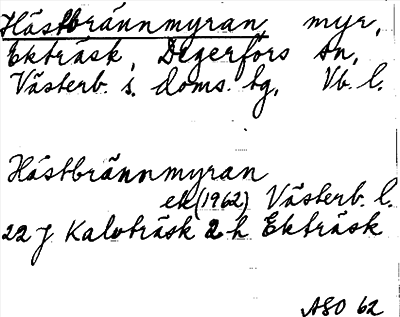 Hästbrännmyran myr,
Ekträsk, Degerfors sn,
Västerb. s. doms. tg, Vb. l.
Hästbrännmyran
ek (1962) Västerb. l.
22 J Kalvträsk 2 h Ekträsk
ASO 62